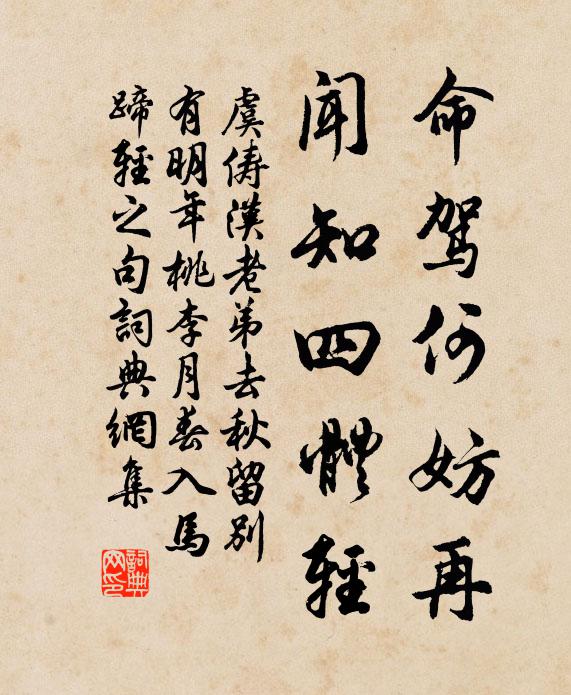 命駕何妨再
聞知四體輕
虞儔漢老弟去秋留別
有明年桃李月春入馬
蹄輕之句詞典網集
詞典
网印